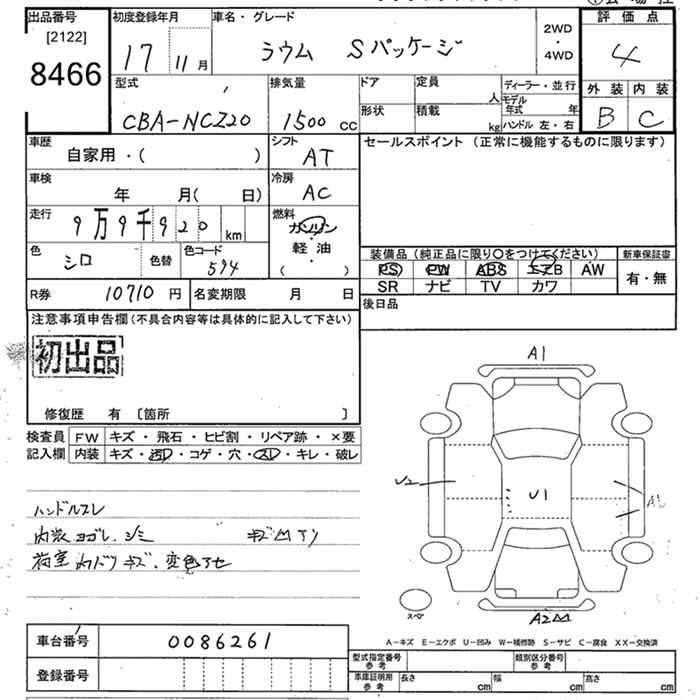 出品番号
[2122]
8466
初度登録年月
17 11月
車名・グレード
ラウム Sパッケージ
2WD
・
4WD
評価点
4
外装 内装
B C
型式
CBA-NCZ20
排気量
1500 cc
ドア 定員 人
形状 積載 kg
ディーラー・並行
モデル年式 年
ハンドル 左・右
車歴
自家用・( )
シフト
AT
セールスポイント(正常に機能するものに限ります)
車検
年 月( 日)
冷房
AC
走行
9万9千920 km
燃料
ガソリン
・
軽油
・
( )
色
シロ
色替
色コード
594
装備品(純正品に限り○をつけてください)
新車保証書
PS PW ABS エアB AW
有・無
SR ナビ TV カワ
R券 10710 円
名変期限 月 日
後日品
注意事項申告欄(不具合内容等は具体的に記入して下さい)
初出品
修復歴 有 〔箇所 〕
検査員 FW キズ・飛石・ヒビ割・リペア跡・×要
記入欄 内装 キズ・汚レ・コゲ・穴・スレ・キレ・破レ
ハンドルスレ
内装ヨゴレ、シミ
A1
U2
U1
A1
A2
スペア
A-キズ E-エクボ U-凹み W-補修跡 S-サビ C-腐食 XX-交換済
車台番号 0086261
登録番号
型式指定番号
参考
類別区分番号
参考
車庫証明用
参考
長さ cm
幅 cm
高さ cm